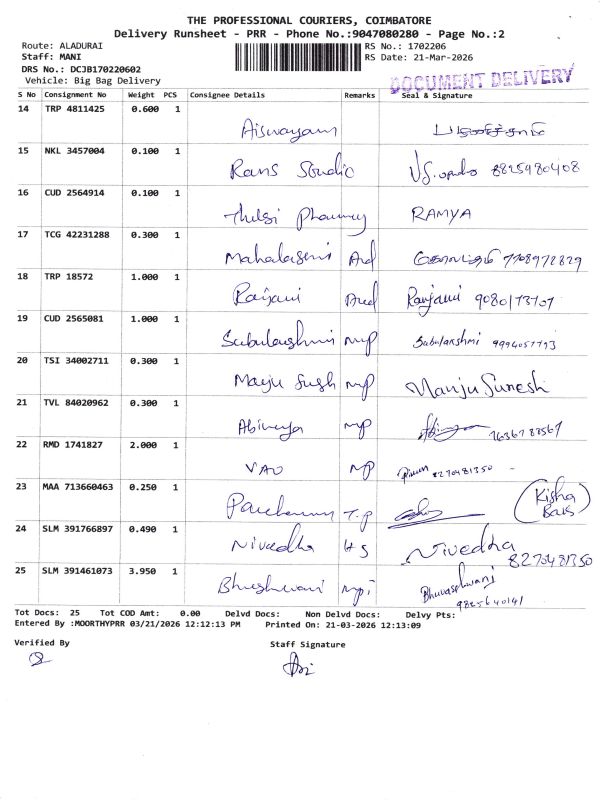 THE PROFESSIONAL COURIERS, COIMBATORE
Delivery Runsheet - PRR - Phone No.:9047080280 - Page No.:2
Route: ALADURAI
Staff: MANI
DRS No.: DCJB170220602
Vehicle: Big Bag Delivery
RS No.: 1702206
RS Date: 21-Mar-2026
DOCUMENT DELIVERY
S No Consignment No Weight PCS Consignee Details Remarks Seal & Signature
14 TRP 4811425 0.600 1
Aiswayam
15 NKL 3457004 0.100 1
Rams Studio 8825980408
16 CUD 2564914 0.100 1
Thulsi Pharmacy RAMYA
17 TCG 42231288 0.300 1
Mahalaxmi 7708972829
18 TRP 18572 1.000 1
Ranjani Ranjani
19 CUD 2565081 1.000 1
Subulakshmi MP Subulakshmi
20 TSI 34002711 0.300 1
Manju MP Manju Suresh
21 TVL 84020962 0.300 1
Abinaya MP
22 RMD 1741827 2.000 1
VAO MP 8270481350
23 MAA 713660463 0.250 1
T.P
24 SLM 391766897 0.490 1
Nivedha HS Nivedha
8270481350
25 SLM 391461073 3.950 1
Tot Docs: 25 Tot COD Amt: 0.00 Delvd Docs: Non Delvd Docs: Delvy Pts:
Entered By :MOORTHYPRR 03/21/2026 12:12:13 PM Printed On: 21-03-2026 12:13:09
Verified By Staff Signature